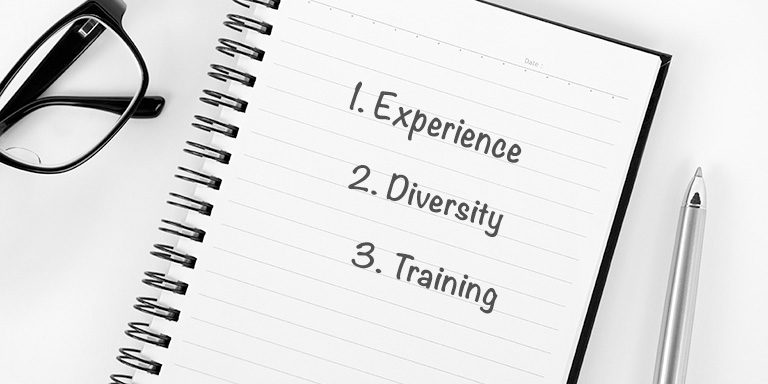 Date :
1. Experience
2. Diversity
3. Training